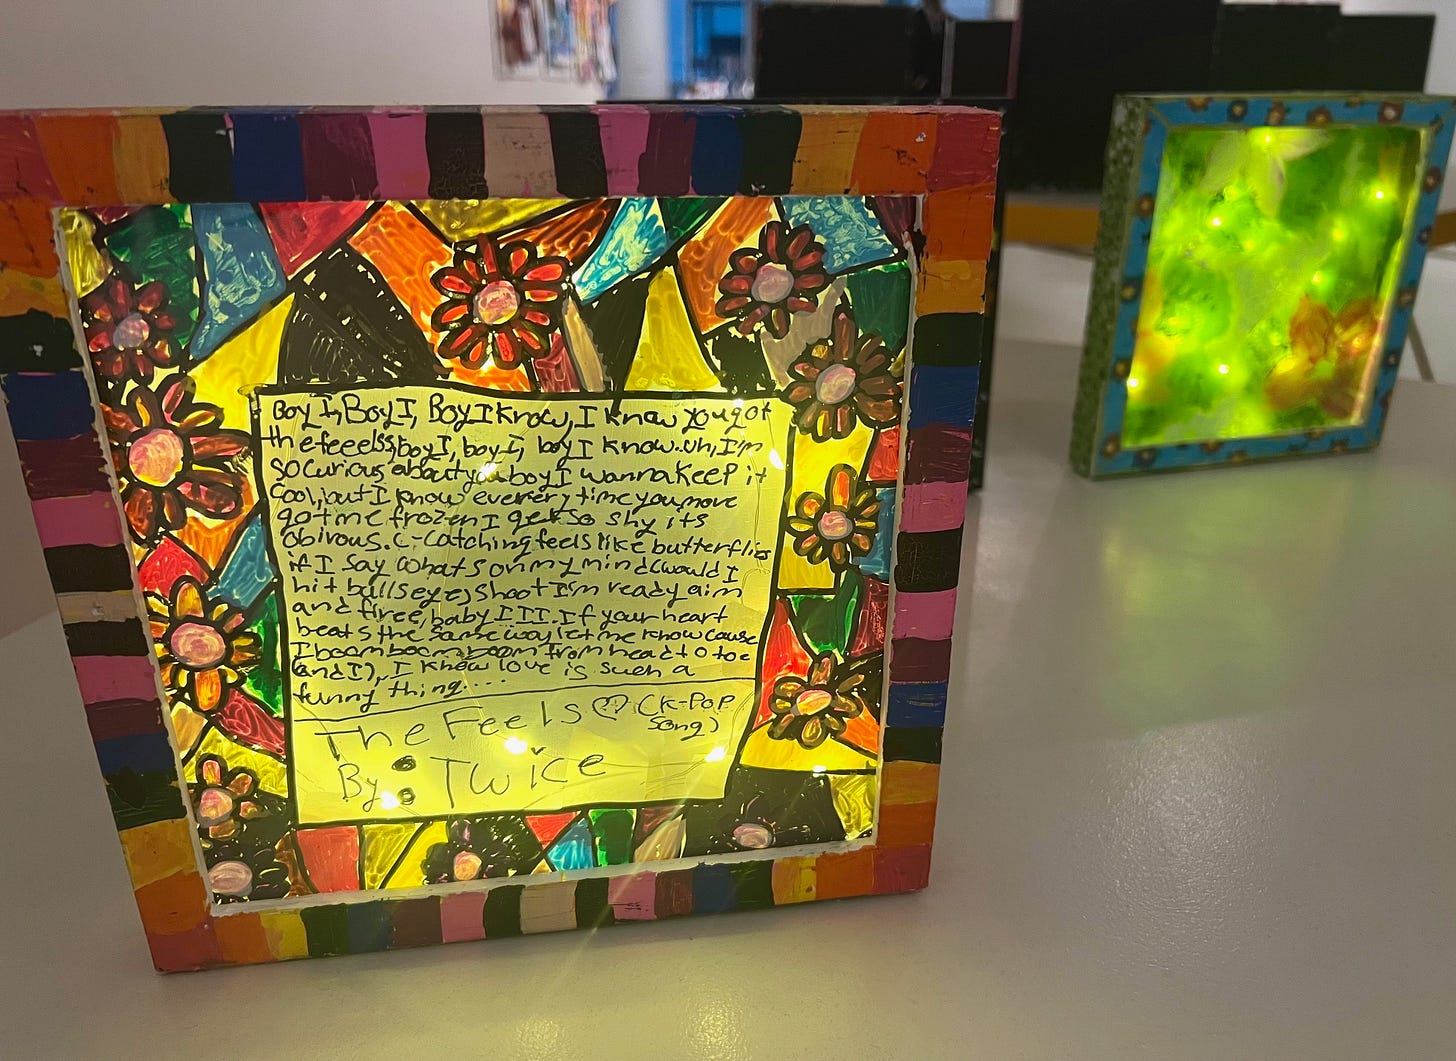 Boy I, Boy I, Boy I know, I know you got
the feeelss, boy I, boy I, boy I know. uh, I'm
so curious about you boy I wanna keep it
cool, but I know everery time you move
got me frozen I get so shy its
obirous. C-catching feels like butterflies
if I say whats on my mind would I
hit bullseye, shoot I'm ready aim
and firee, baby I I I. If your heart
beats the same way let me know cause
I boom boom boom from head to toe
(and I), I know love is such a
funny thing....
The Feels ♡ (K-Pop
song)
By: Twice